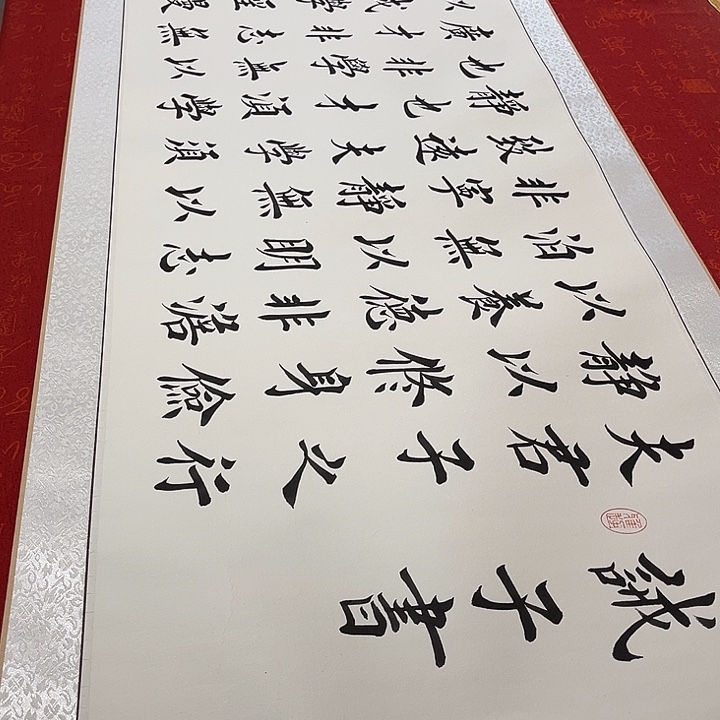 誡子書
夫君子之行
靜以修身儉
以養德非澹
泊無以明志
非寧靜無以
致遠夫學須
靜也才須學
也非學無以
廣才非志無
以成學